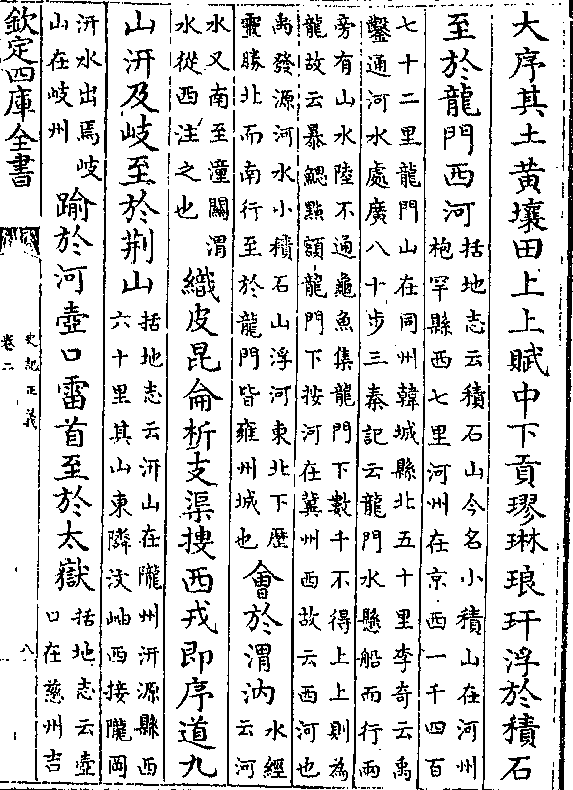 大序其土黃壤田上上賦中下貢璆琳琅玕浮於積石
至於龍門西河
括地志云積石山今名小積山在河州
枹罕縣西七里河州在京西一千四百
七十二里龍門山在同州韓城縣北五十里李奇云禹
鑿通河水處廣八十步三秦記云龍門水懸船而行兩
旁有山水陸不通龜魚集龍門下數千不得上上則為
龍故云暴鰓點額龍門下按河在冀州西故云西河也
禹發源河水小積石山浮河東北下歷
靈勝北而南行至於龍門皆雍州城也
會於渭汭
水經
云河
水又南至潼關渭
水從西注之也
織皮昆侖析支渠搜西戎即序道九
山汧及岐至於荆山
括地志云汧山在隴州汧源縣西
六十里其山東隣汶岫西接隴岡
汧水出焉岐
山在岐州
踰於河壺口雷首至於太嶽
括地志云壺
口在慈州吉
欽定四庫全書
史記正義
卷二
八